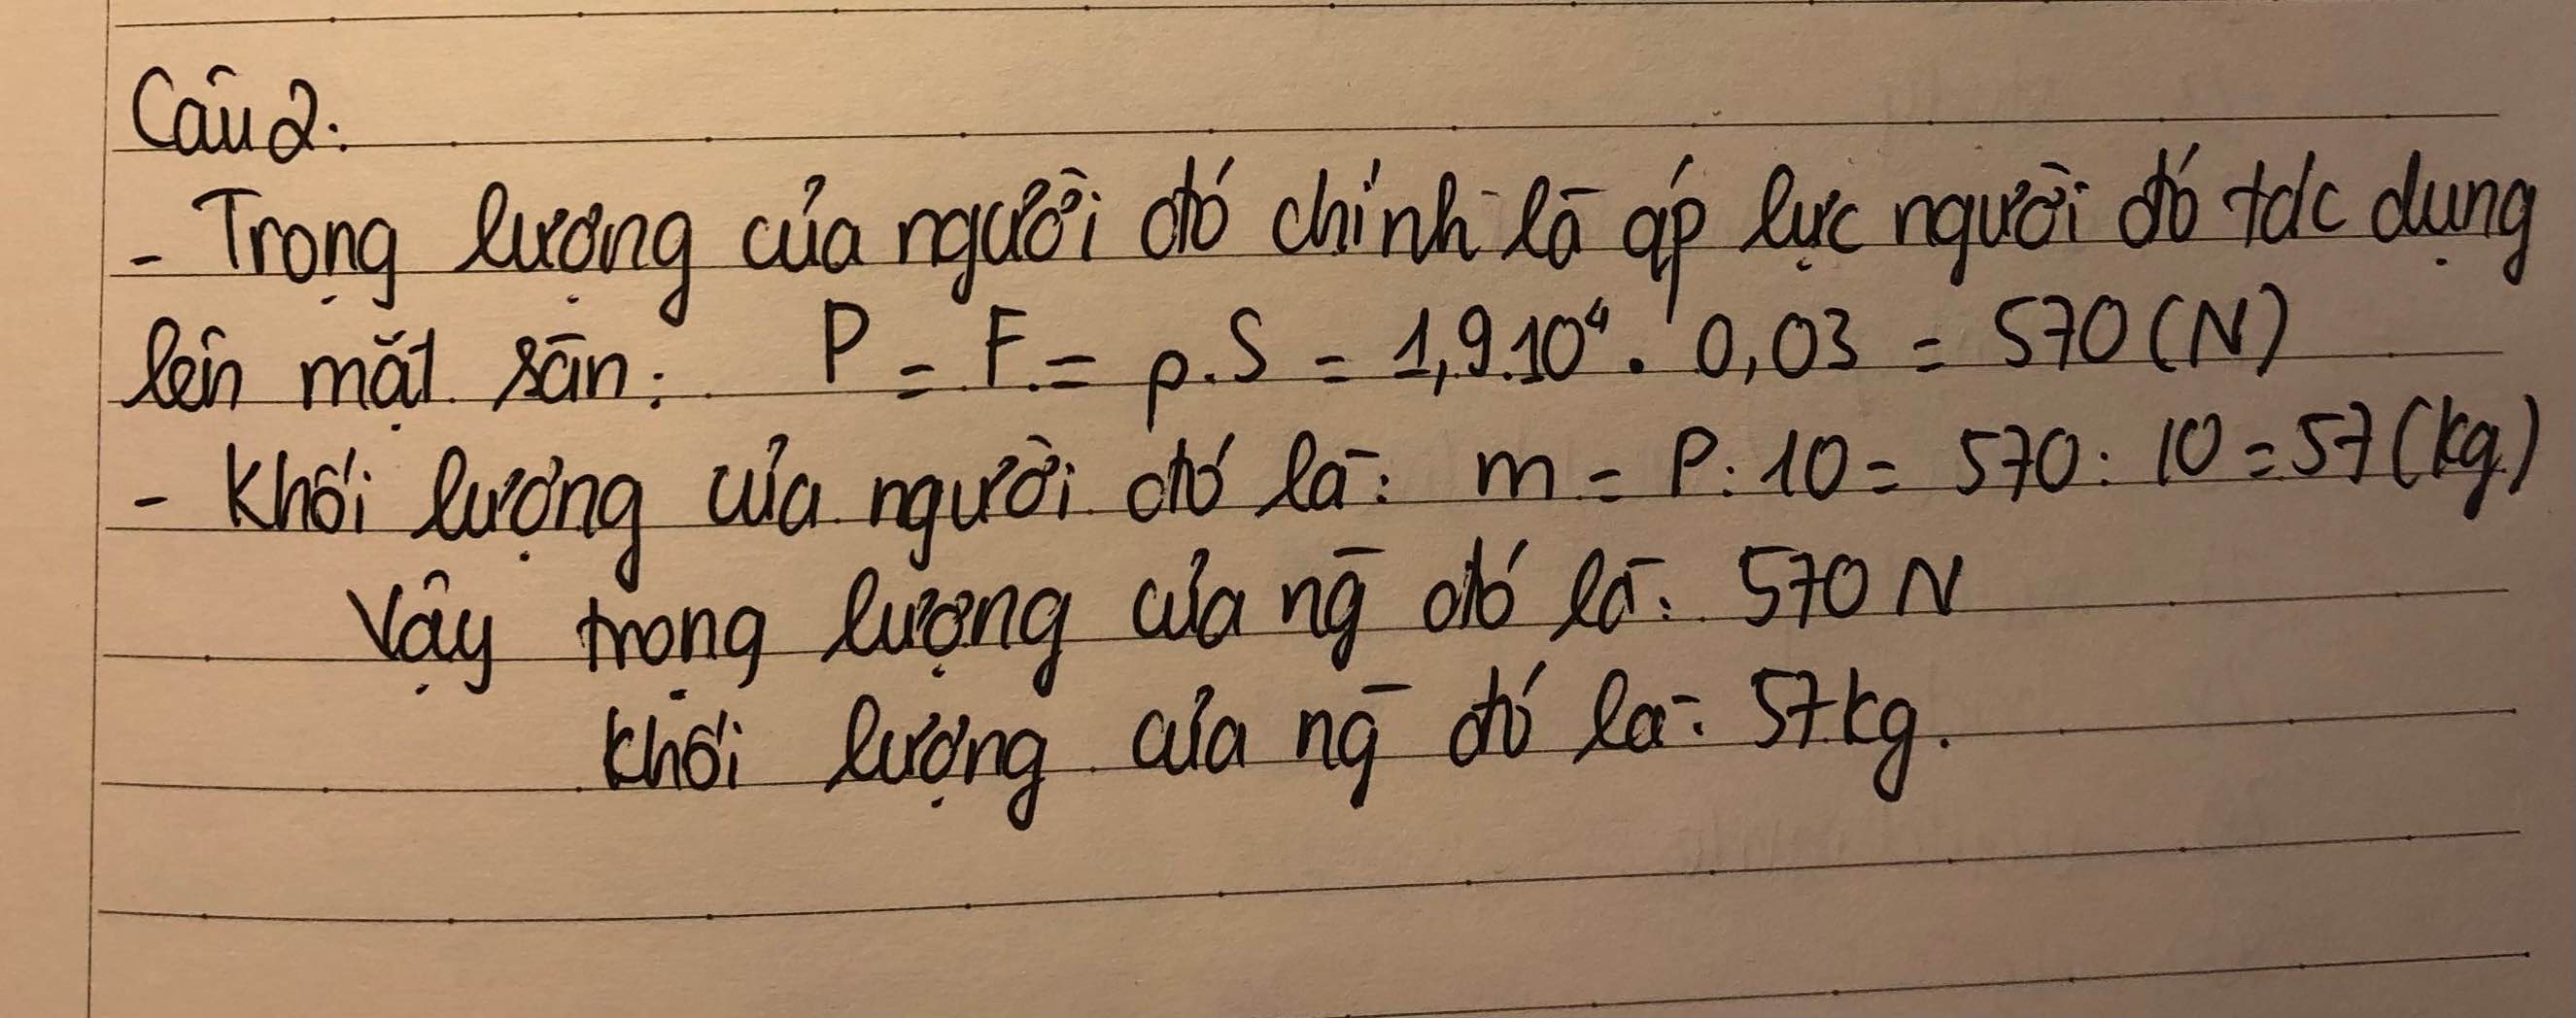 Câu 2:
- Trọng lượng của người đó chính là áp lực người đó tác dụng
lên mặt sàn: P = F = p.S = 1,9.10⁴ . 0,03 = 570 (N)
- Khối lượng của người đó là: m = P : 10 = 570 : 10 = 57 (kg)
Vậy trọng lượng của ng̀ đó là: 570 N
khối lượng của ng̀ đó là: 57kg.